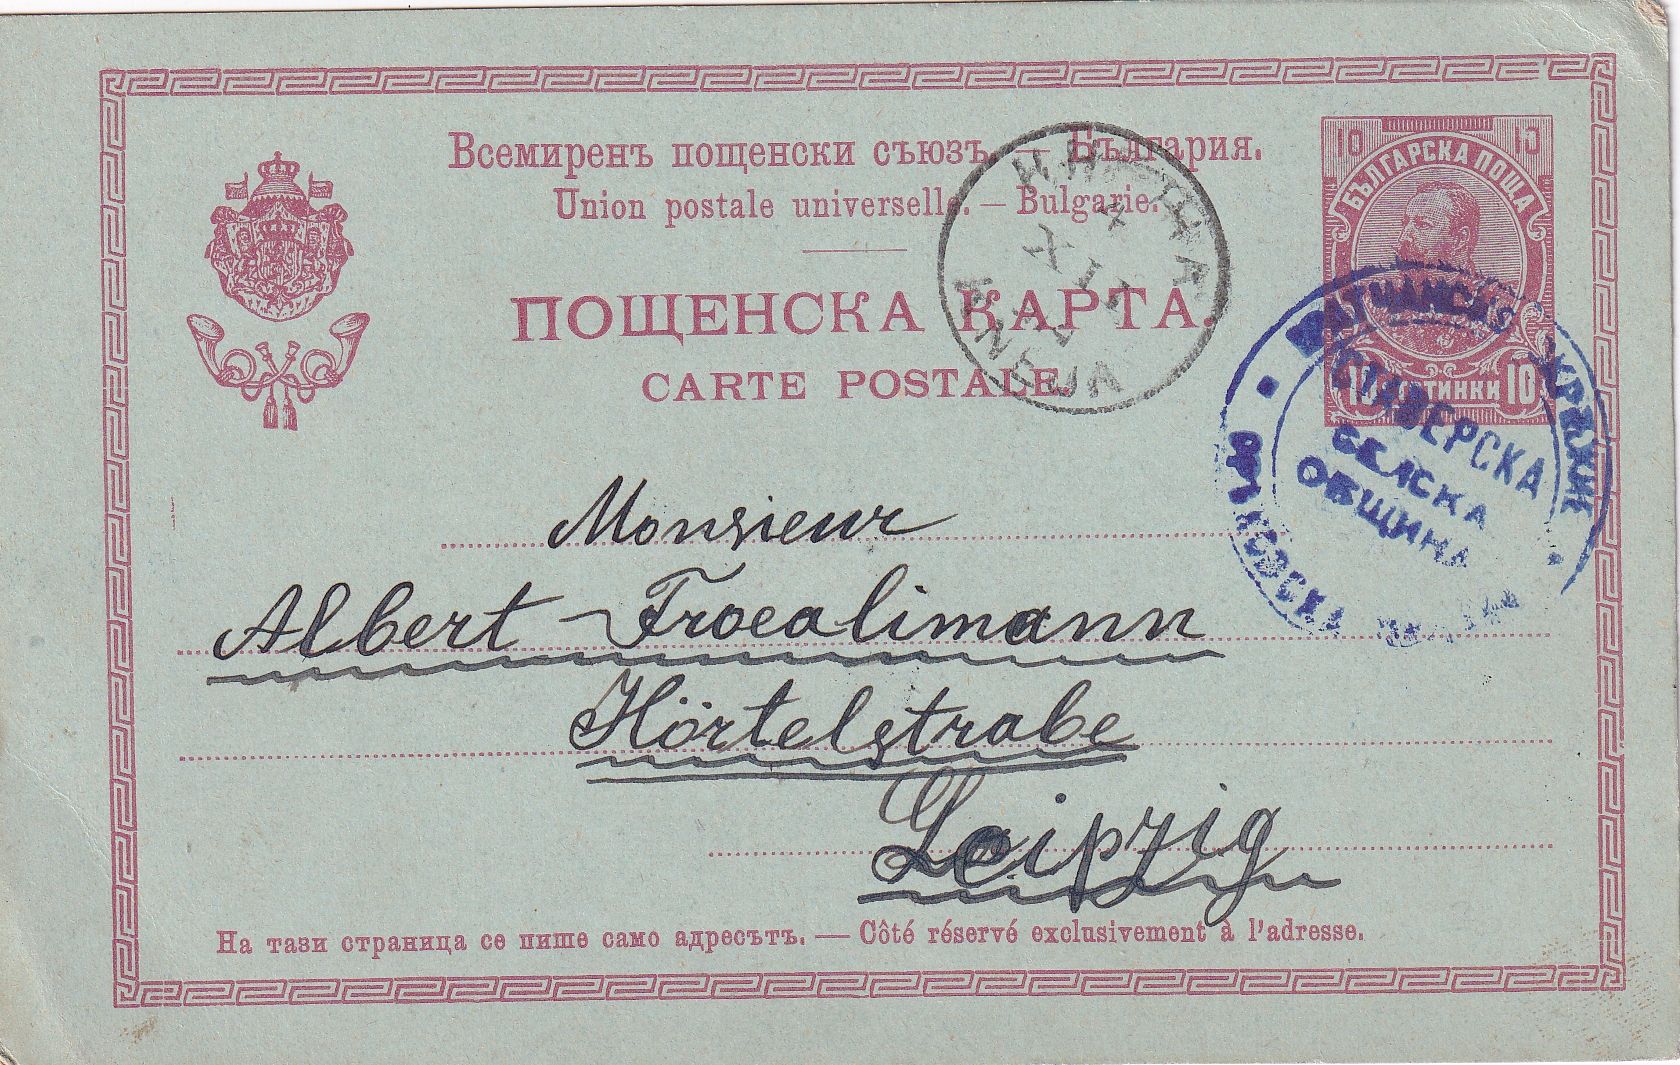 Всемиренъ пощенски съюзъ. — България.
Union postale universelle. — Bulgarie.
ПОЩЕНСКА КАРТА.
CARTE POSTALE.
10 10
БЪЛГАРСКА ПОЩА
10 СТОТИНКИ 10
XII
ВРАЧАНСКО ОКРЪЖИЕ
СЕЛСКА
ОБЩИНА
Monsieur
Albert Troealimann
Hörtelstrabe
Leipzig
На тази страница се пише само адресътъ. — Côté réservé exclusivement à l'adresse.